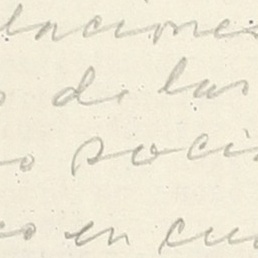 laciones
de las
o soci
o en cu